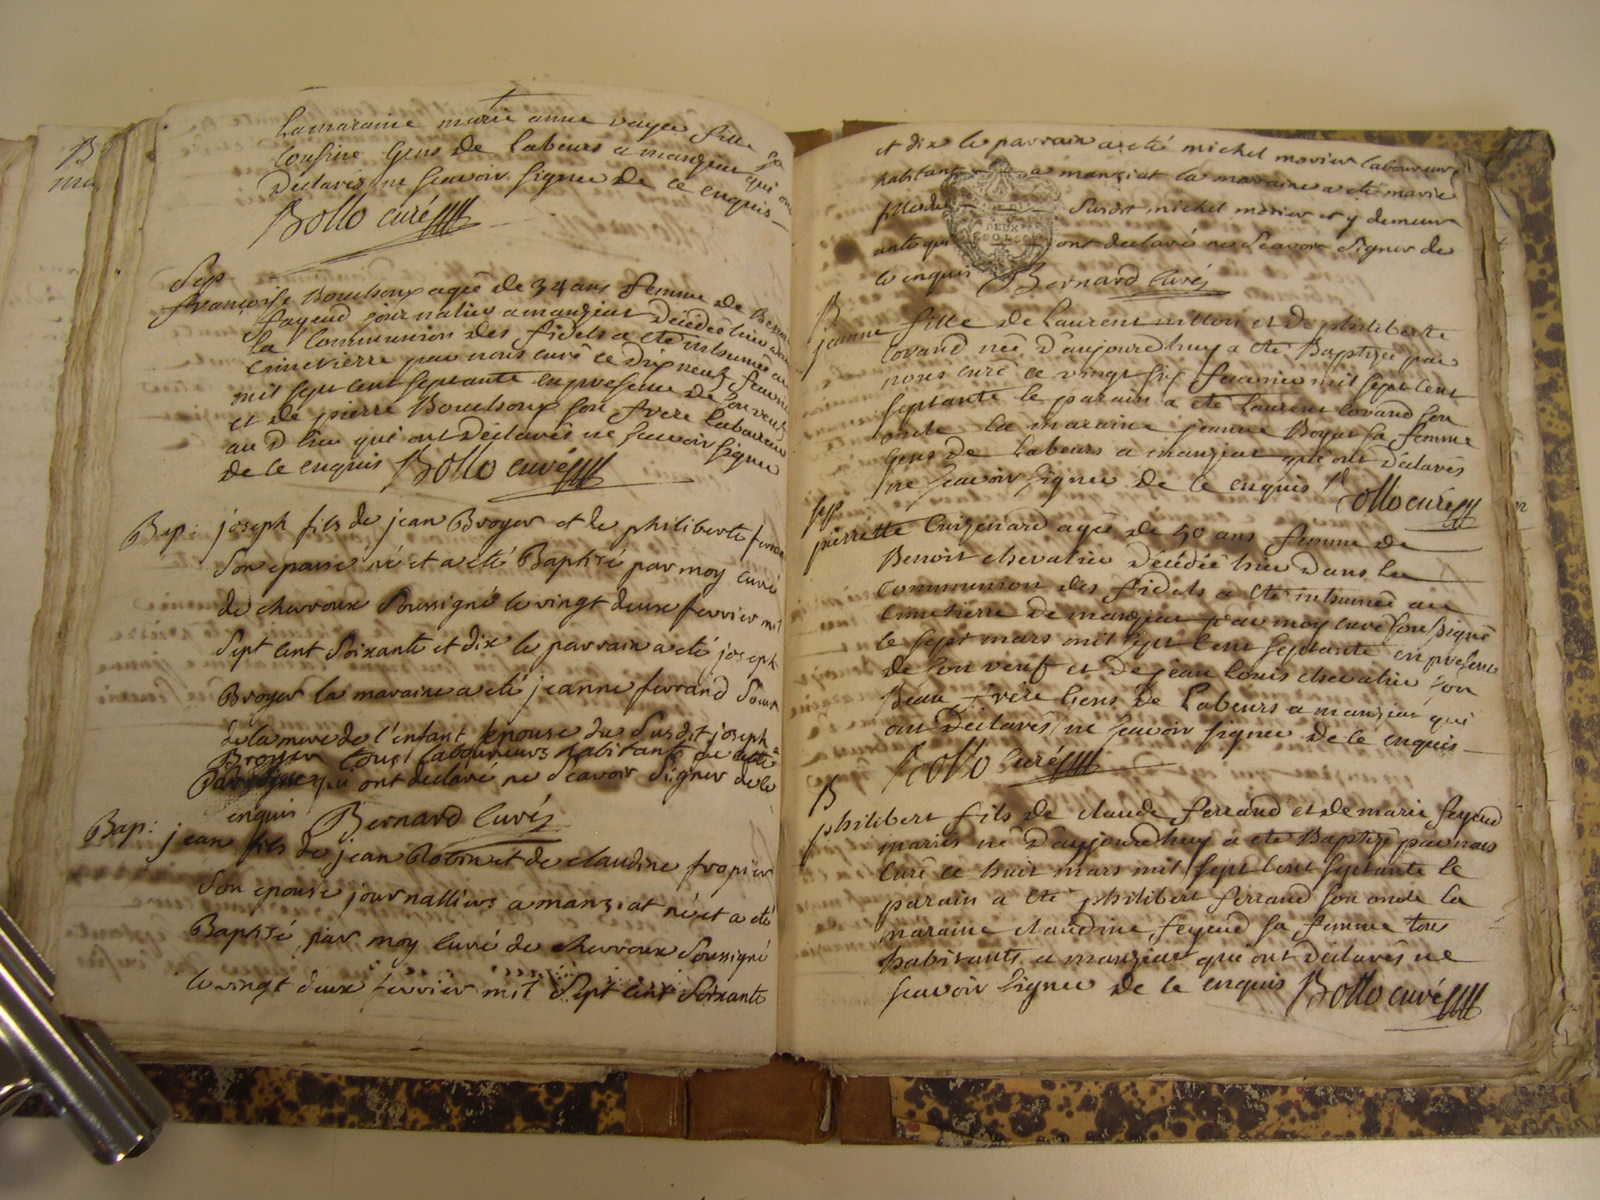 B
la maraine marie anne voyer fille sa
Cousine Gens de Labeurs a manziat qui ont
Déclarés ne scavoir signer De ce enquis
Bollo curé
Sep
françoise Bouchoux agée de 34 ans femme de
fayend journalier a manziat Décédée hier dans
la Communion des fidels a été inhumée au
Cimetierre par nous curé ce Dix neuf fevrier
mil sept cent septante en presence de son veuf
et de pierre Bouchoux son frere Laboureur
au d lieu qui ont Déclarés ne scavoir signer
de ce enquis Bollo curé
Bap: joseph fils de jean Broyer et de philiberte
Son epouse né et a eté Baptisé par moy curé
de chevroux Soussigné le vingt deux fevrier mil
Sept cent Soixante et dix le parrain a eté joseph
Broyer la maraine a eté jeanne ferrand Soeur
de la mere de l'enfant epouse du Susdit joseph
Broyer tous laboureurs habitants de cette
Parroisse qui ont déclaré ne Scavoir Signer de ce
enquis Bernard Curé
Bap: jean fils de jean et de claudine frapier
Son epouse journalliers a manziat né et a eté
Baptisé par moy Curé de chevroux Soussigné
le vingt deux fevrier mil Sept cent Soixante
et dix le parrain a eté michel morier laboureur
habitant a manziat la marraine a eté marie
fille du Susdit michel morier et y demeur
ante qui ont déclaré ne Scavoir Signer de
ce enquis Bernard Curé
B
jeanne fille de Laurent et De philiberte
Lovand née D'aujourdhuy a été Baptisée par
nous curé ce vingt six fevrier mil sept cent
septante le parain a été Laurent Lovand son
oncle la maraine jeanne Boyat sa femme
Gens de Labeurs a manziat qui ont Déclarés
ne scavoir signer De ce enquis Bollo curé
sep
pierrette agée de 50 ans femme de
Benoit chevalier Décédée hier Dans la
Communion des fidels a été inhumée au
Cimetierre de manziat par moy curé soussigné
le sept mars mil sept cent septante en presence
de son veuf et De jean Louis chevalier son
Beau frere Gens de Labeurs a manziat qui
ont Déclarés ne scavoir signer de ce enquis
Bollo Curé
B
philibert fils de claude ferrand et de marie feyend
mariés né D'aujourdhuy a été Baptisé par nous
Curé ce huit mars mil sept cent septante le
parain a été philibert ferrand son oncle la
maraine claudine feyend sa femme tous
habitants a manziat qui ont Déclarés ne
scavoir signer De ce enquis Bollo curé